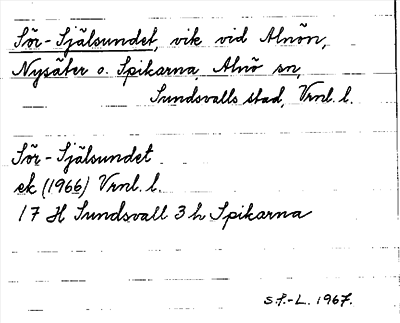 Sör-Själsundet, vik vid Alnön,
Nysäter o. Spikarna, Alnö sn,
Sundsvalls stad, Vrnl. l.
Sör-Själsundet
ek (1966) Vrnl. l.
17 H Sundsvall 3 h Spikarna
S.f.-L. 1967.